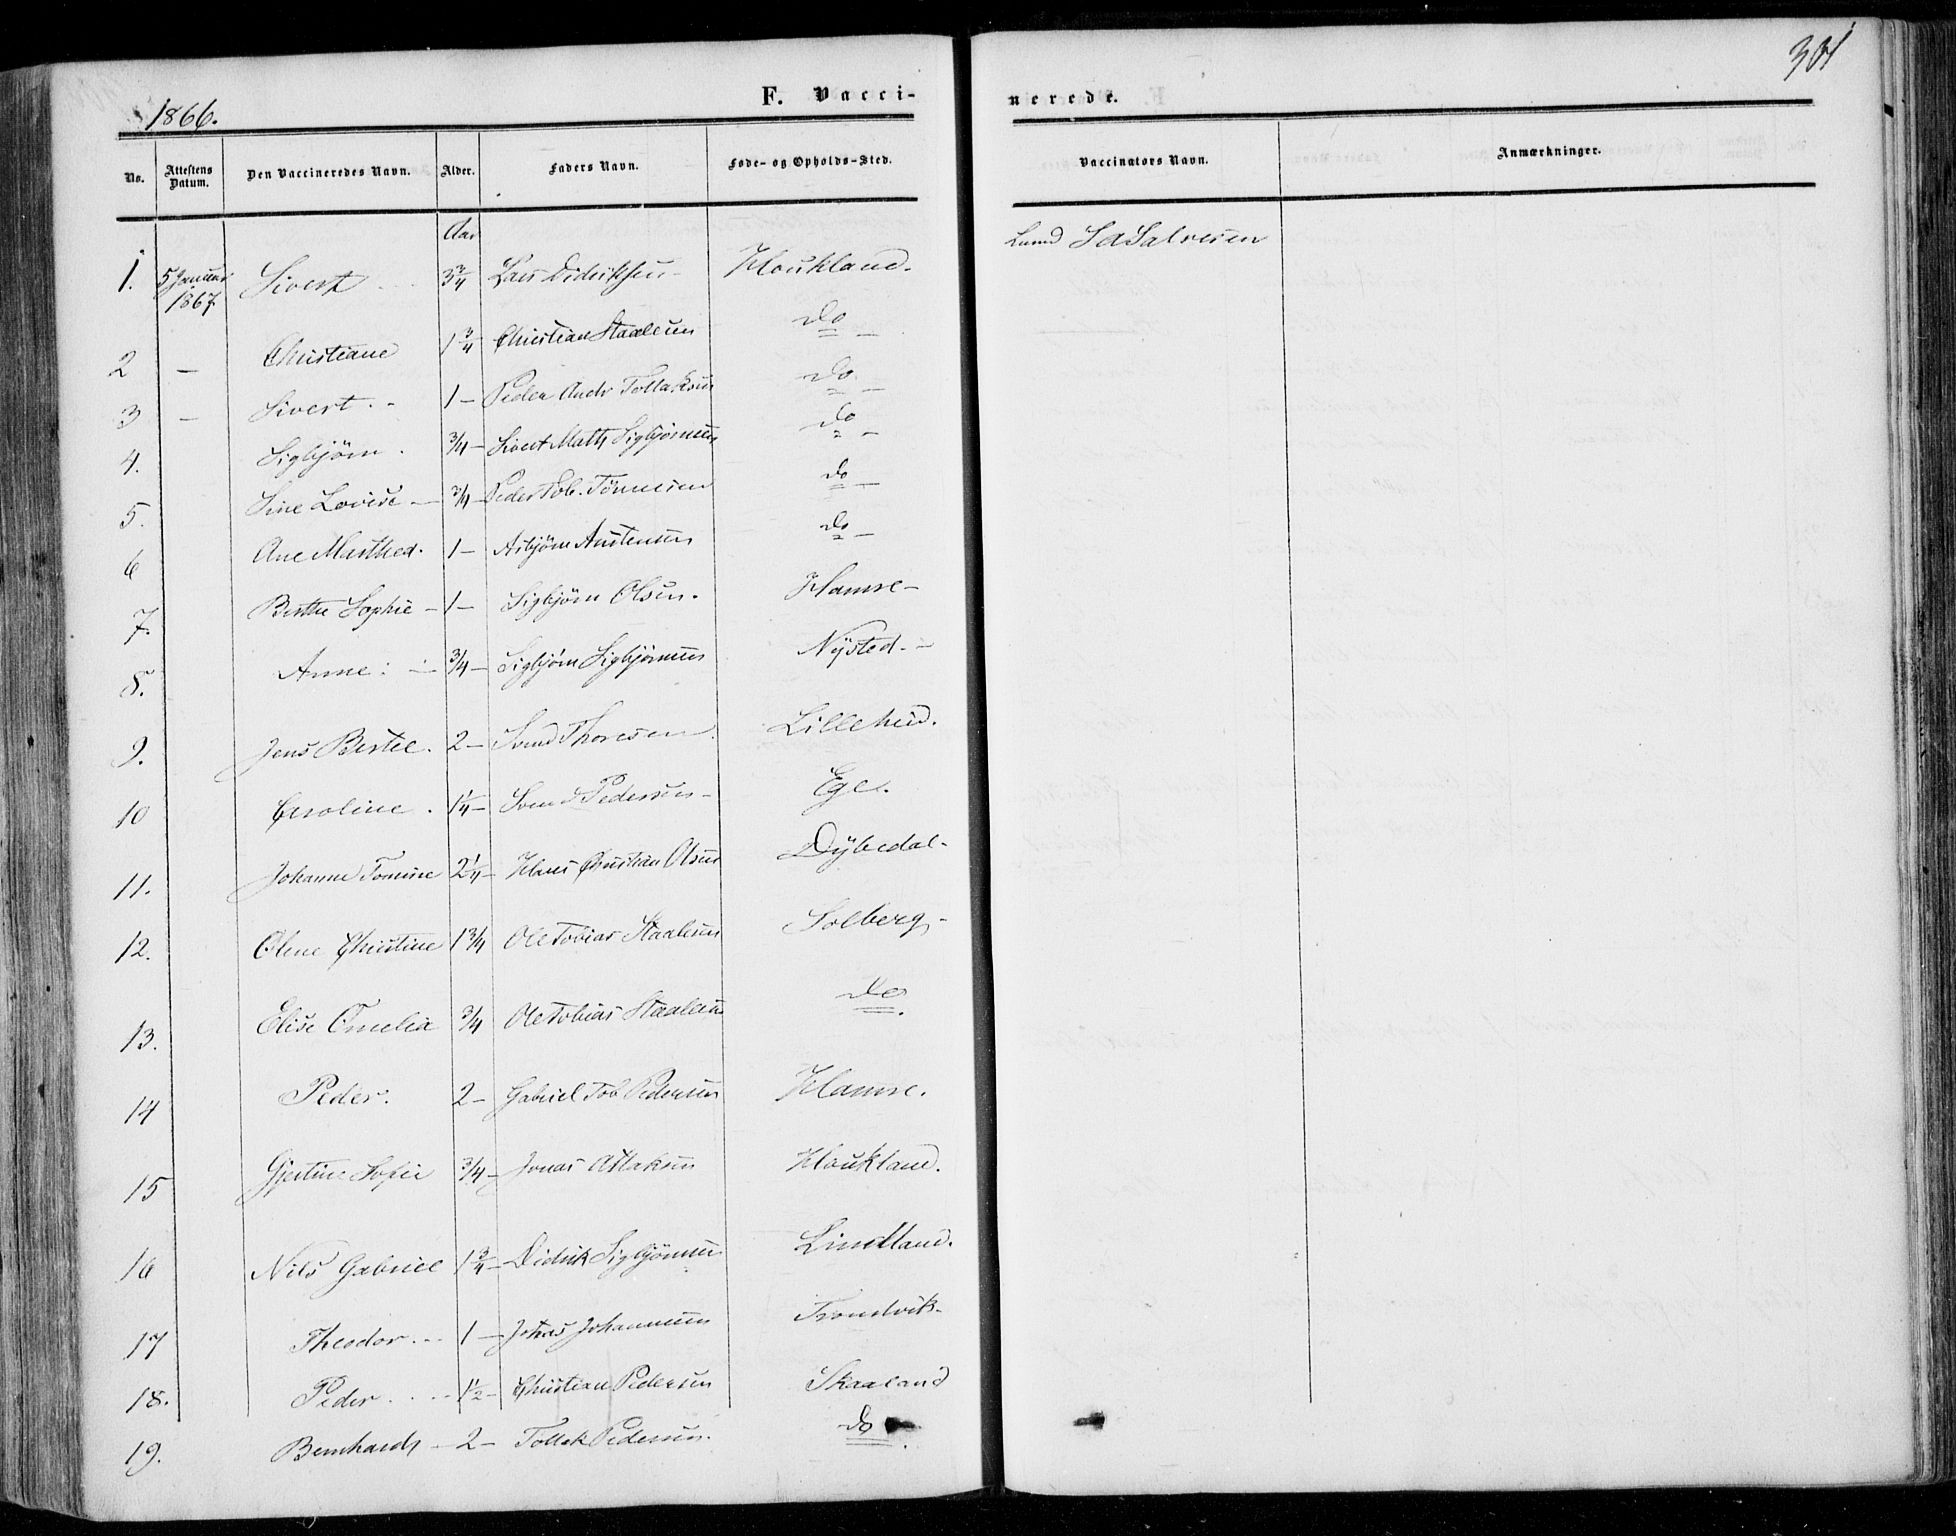 301
1866.
F. Vacci-
nerede.
No. Attestens Datum. Den Vaccineredes Navn. Alder. Faders Navn. Føde- og Opholds-Sted. Vaccinators Navn. Anmærkninger.
Aar
1. 5 Januar 1867 Sivert 3 3/4 Lars Didriksen Houkland. Lund S A Salvesen
2 — Christiane 1 3/4 Christian Staalesen do —
3 — Sivert. - 1 — Peder Andr Tollaksen do —
4. Sigbjörn. 3/4 — Sivert Math Sigbjörnsen do —
5. Sine Lovise — 3/4 Peder Tob. Tönnesen do —
6 Ane Marthea. 1 — Asbjörn Austensen do —
7. Berthe Sophie — 1 — Sigbjörn Olsen. Hamre —
8. Anne: — 3/4 — Sigbjörn Sigbjörnsen Nÿsted. —
9. Jens Bertel. 2 — Svend Thoresen Lillehei.
10 Caroline. 1 1/4 — Svend Pedersen — Ege.
11. Johanne Tomine 2 1/4 — Hans Christian Olsen Dÿbedal-
12. Olene Christine 1 3/4 Ole Tobias Staalesen Solberg-
13. Elise Omelia 3/4 Ole Tobias Staalesen do
14 Peder. 2 — Gabriel Tob Pedersen Hamre.
15 Gjertine Sofie 3/4 — Jonas Atlaksen Houkland.
16 Nils Gabriel 1 3/4 — Didrik Sigbjörnsen Lindland.
17 Theodor. — 1 — Johannesen Trondvik-
18. Peder 1 1/2 — Christian Pedersen Skaaland
19. Bernhard — 2 — Tollak Pedersen. do